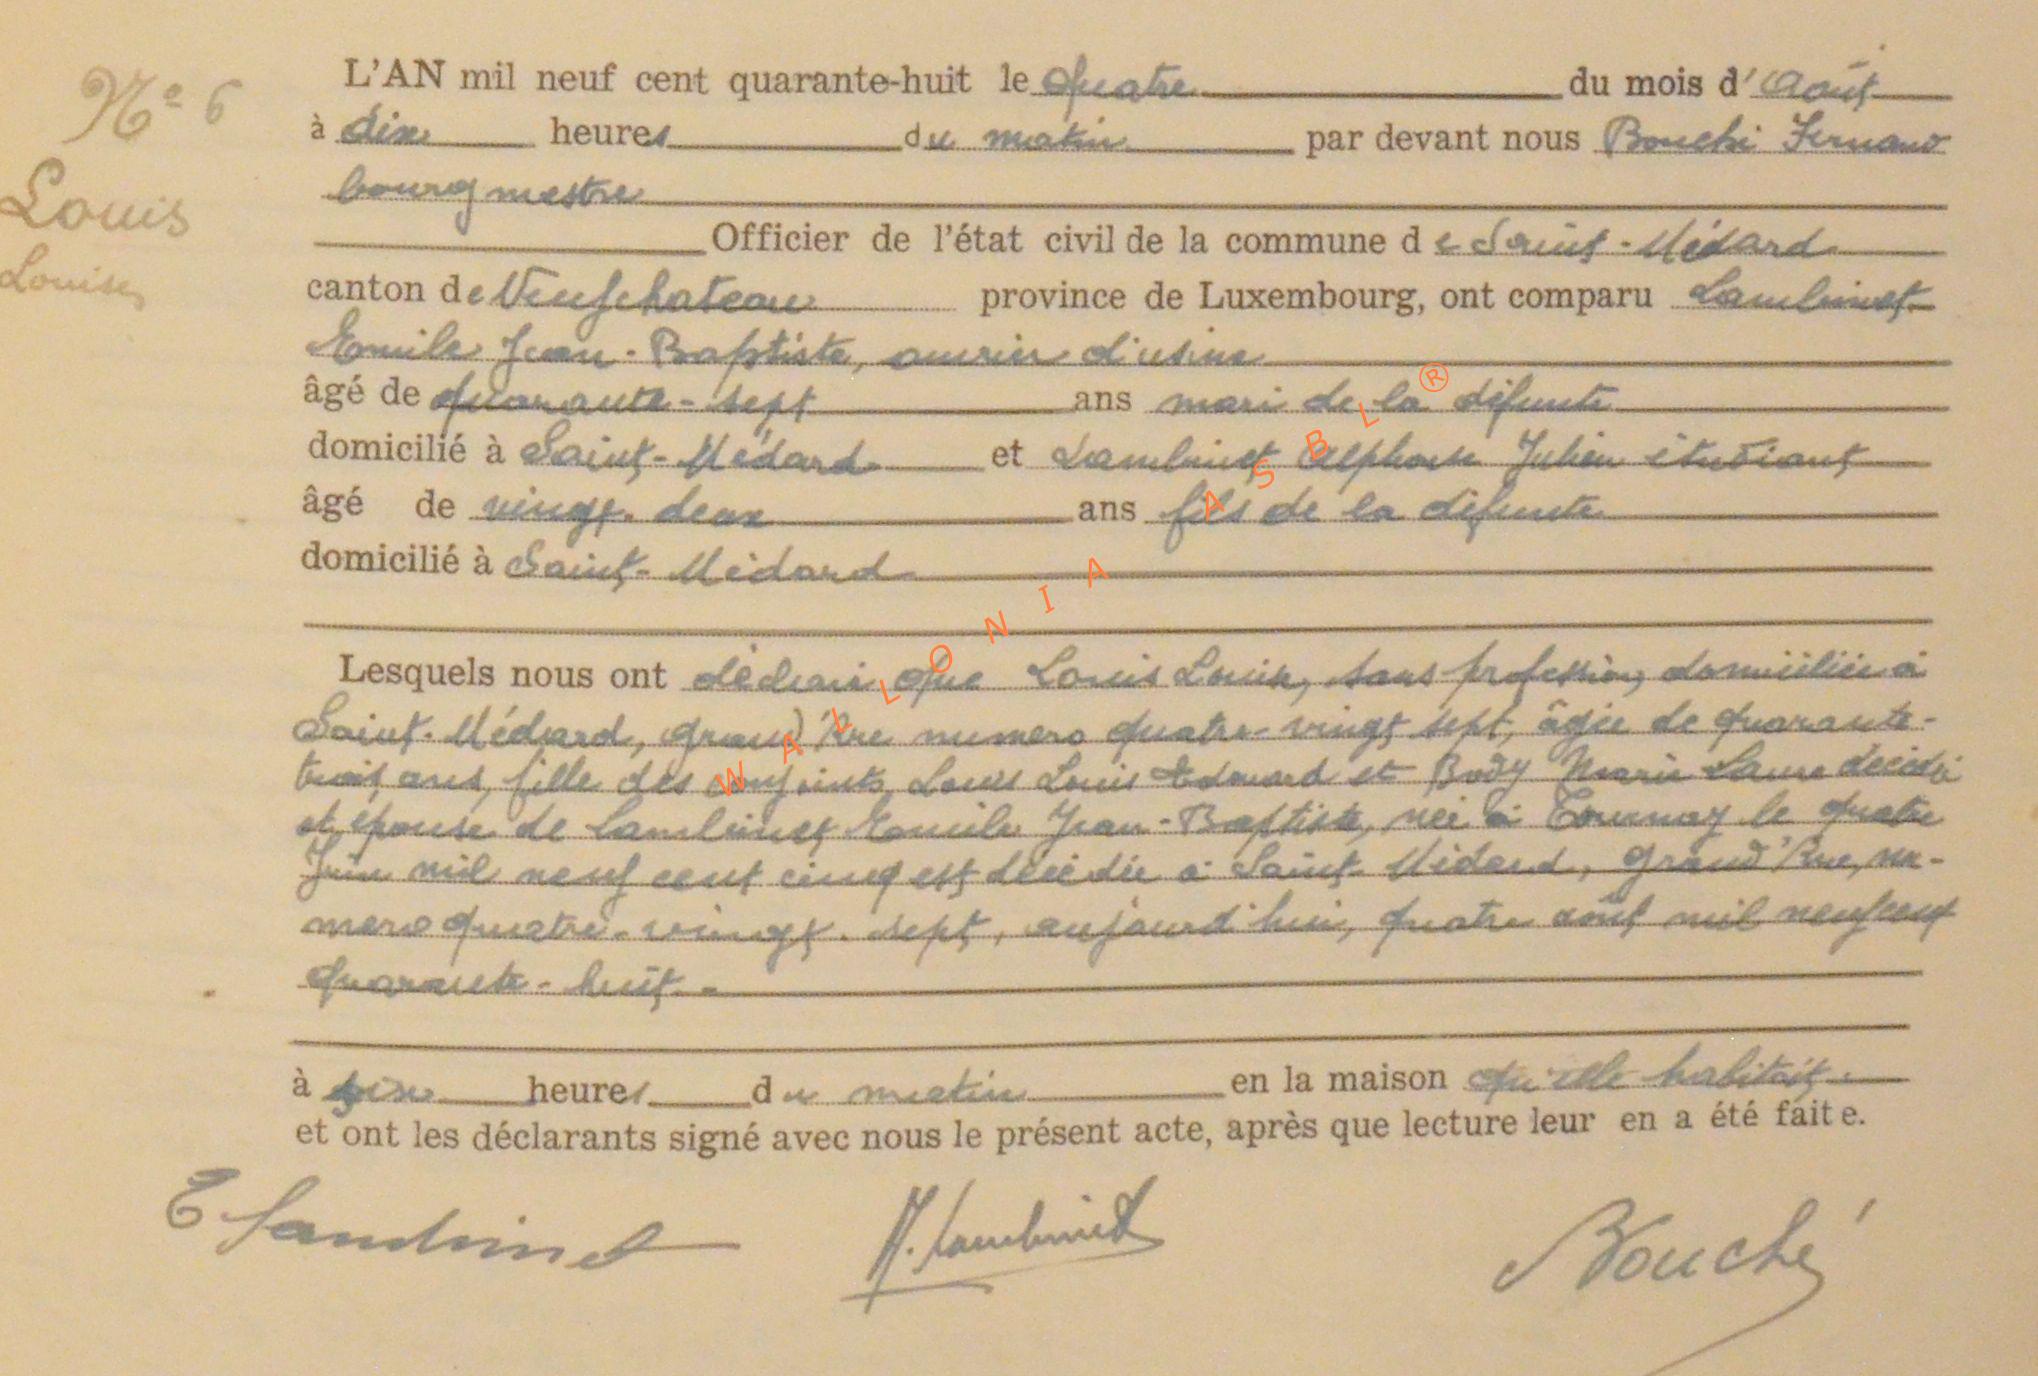 Nº 6
Louis
Louise
L'AN mil neuf cent quarante-huit le quatre du mois d'août
à dix heures du matin par devant nous Bouché Fernand
bourgmestre
Officier de l'état civil de la commune de Saint-Médard
canton de Neufchateau province de Luxembourg, ont comparu Lambinet
Emile Jean-Baptiste, ouvrier d'usine
âgé de quarante-sept ans mari de la défunte
domicilié à Saint-Médard et Lambinet Alphonse Julien étudiant
âgé de vingt-deux ans fils de la défunte
domicilié à Saint-Médard
Lesquels nous ont déclaré que Louis Louise, sans profession, domiciliée à
Saint-Médard, grand'Rue numero quatre-vingt sept, âgée de quarante-
trois ans, fille des conjoints Louis Louis Edouard et Body Marie Laure décédés
et épouse de Lambinet Emile Jean-Baptiste, née à Tournay le quatre
Juin mil neuf cent cinq est décédée à Saint-Médard, grand'Rue, nu-
mero quatre-vingt-sept, aujourd'hui, quatre août mil neuf cent
quarante-huit.-
à heures du matin en la maison qu'elle habitait.
et ont les déclarants signé avec nous le présent acte, après que lecture leur en a été faite.
E Lambinet
A. Lambinet
Bouché
WALLONIA ASBL ®